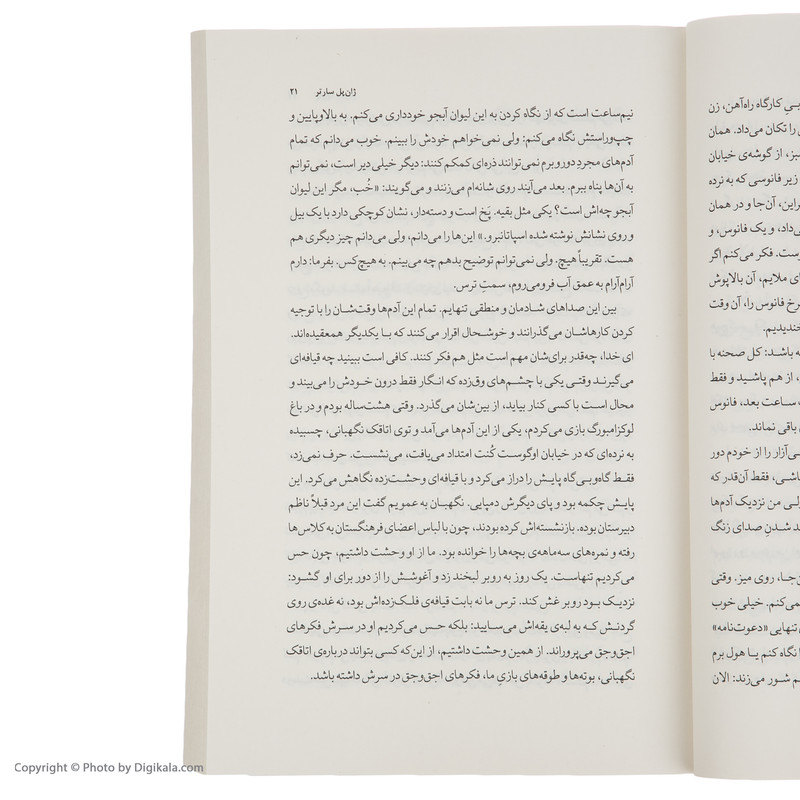 بی کارگاه راه‌آهن، زن
را تکان می‌داد. همان
سبز، از گوشه‌ی خیابان
زیر فانوسی که به نرده
براین، آن‌جا و در همان
می‌داد، و یک فانوس، و
وست. فکر می‌کنم اگر
ای ملایم، آن بالاپوش
رخ فانوس را، آن وقت
خندیدیم.
ه باشد: کل صحنه با
، از هم پاشید و فقط
ساعت بعد، فانوس
باقی نماند.
ی‌آزار را از خودم دور
باشی، فقط آن‌قدر که
ولی من نزدیک آدم‌ها
ند شدنِ صدای زنگ
ن‌جا، روی میز. وقتی
نمی‌کنم. خیلی خوب
تنهایی «دعوت‌نامه»
نگاه کنم یا هول برم
م شور می‌زند: الان
ژان‌پل سارتر ۲۱
نیم‌ساعت است که از نگاه کردن به این لیوان آبجو خودداری می‌کنم. به بالاوپایین و
چپ‌وراستش نگاه می‌کنم: ولی نمی‌خواهم خودش را ببینم. خوب می‌دانم که تمام
آدم‌های مجردِ دوروبرم نمی‌توانند ذره‌ای کمکم کنند: دیگر خیلی دیر است، نمی‌توانم
به آن‌ها پناه ببرم. بعد می‌آیند روی شانه‌ام می‌زنند و می‌گویند: «خُب، مگر این لیوان
آبجو چه‌اش است؟ یکی مثل بقیه. پَخ است و دسته‌دار، نشان کوچکی دارد با یک بیل
و روی نشانش نوشته شده اسپاتانبرو.» این‌ها را می‌دانم، ولی می‌دانم چیز دیگری هم
هست. تقریباً هیچ. ولی نمی‌توانم توضیح بدهم چه می‌بینم. به هیچ‌کس. بفرما: دارم
آرام‌آرام به عمق آب فرومی‌روم، سمتِ ترس.
بین این صداهای شادمان و منطقی تنهایم. تمام این آدم‌ها وقت‌شان را با توجیه
کردن کارهاشان می‌گذرانند و خوشحال اقرار می‌کنند که با یکدیگر هم‌عقیده‌اند.
ای خدا، چه‌قدر برای‌شان مهم است مثل هم فکر کنند. کافی است ببینید چه قیافه‌ای
می‌گیرند وقتی یکی با چشم‌های وق‌زده که انگار فقط درون خودش را می‌بیند و
محال است با کسی کنار بیاید، از بین‌شان می‌گذرد. وقتی هشت‌ساله بودم و در باغ
لوکزامبورگ بازی می‌کردم، یکی از این آدم‌ها می‌آمد و توی اتاقک نگهبانی، چسبیده
به نرده‌ای که در خیابان اوگوست کُنت امتداد می‌یافت، می‌نشست. حرف نمی‌زد،
فقط گاه‌وبی‌گاه پایش را دراز می‌کرد و با قیافه‌ای وحشت‌زده نگاهش می‌کرد. این
پایش چکمه بود و پای دیگرش دمپایی. نگهبان به عمویم گفت این مرد قبلاً ناظم
دبیرستان بوده. بازنشسته‌اش کرده بودند، چون با لباس اعضای فرهنگستان به کلاس‌ها
رفته و نمره‌های سه‌ماهه‌ی بچه‌ها را خوانده بود. ما از او وحشت داشتیم، چون حس
می‌کردیم تنهاست. یک روز به روبر لبخند زد و آغوشش را از دور برای او گشود:
نزدیک بود روبر غش کند. ترس ما نه بابت قیافه‌ی فلک‌زده‌اش بود، نه غده‌ی روی
گردنش که به لبه‌ی یقه‌اش می‌سایید: بلکه حس می‌کردیم او در سرش فکرهای
اجق‌وجق می‌پروراند. از همین وحشت داشتیم، از این‌که کسی بتواند درباره‌ی اتاقک
نگهبانی، بوته‌ها و طوقه‌های بازیِ ما، فکرهای اجق‌وجق در سرش داشته باشد.
Copyright © Photo by Digikala.com